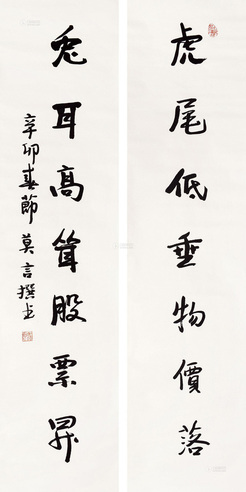 虎尾低垂物價落
兔耳高聳股票昇
辛卯春節 莫言撰書